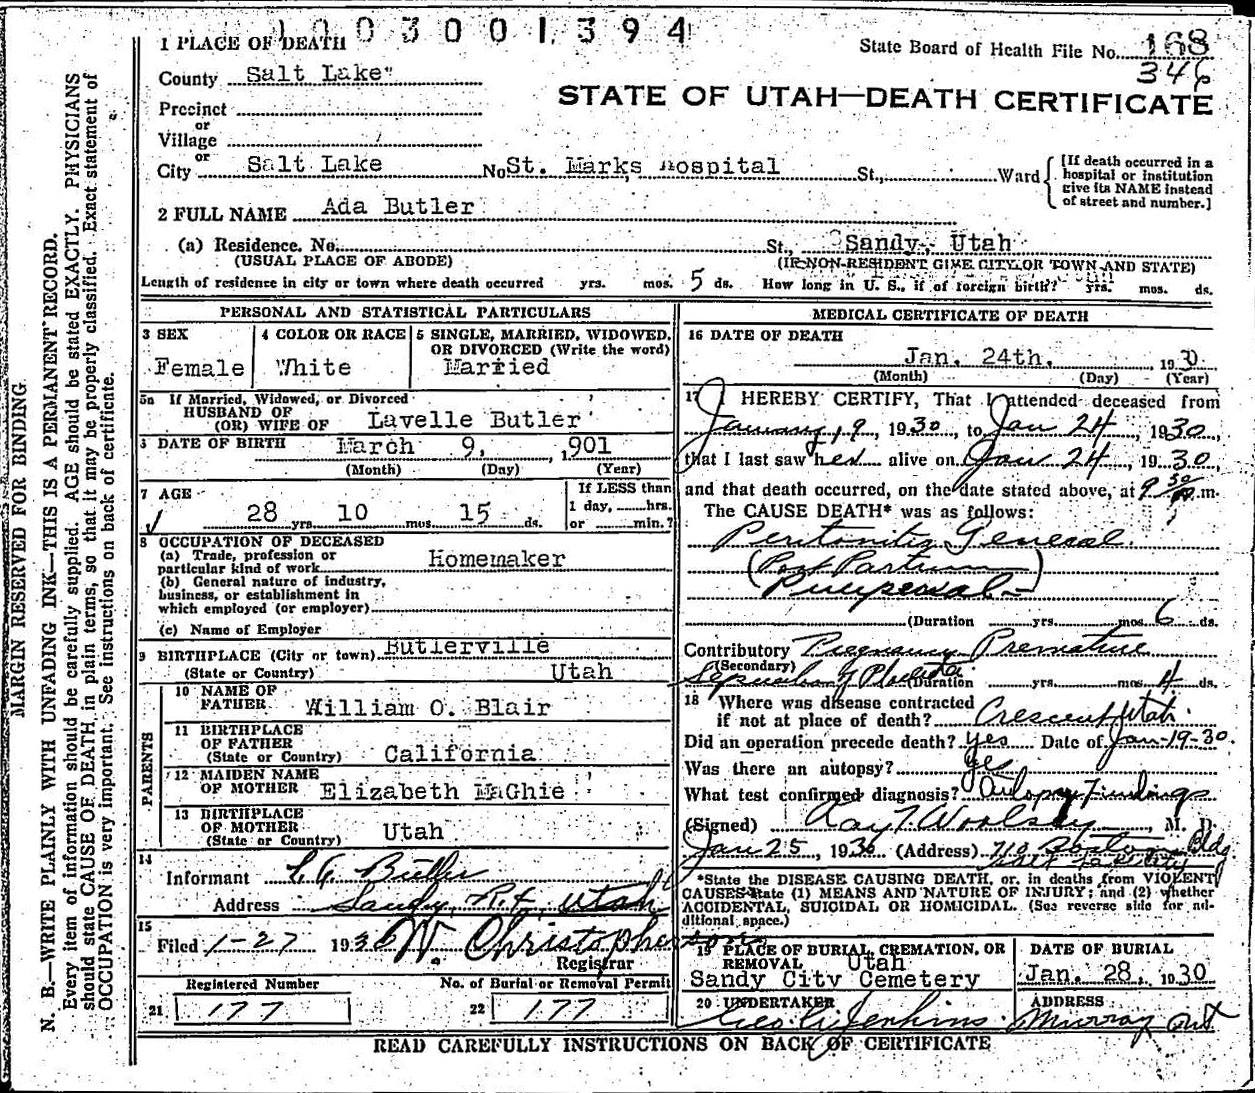 1003001394
1 PLACE OF DEATH
State Board of Health File No. 168
346
County Salt Lake
STATE OF UTAH—DEATH CERTIFICATE
Precinct
or
Village
or
City Salt Lake No. St. Marks Hospital St., Ward
[If death occurred in a
hospital or institution
give its NAME instead
of street and number.]
2 FULL NAME Ada Butler
(a) Residence. No. St., Sandy, Utah
(USUAL PLACE OF ABODE) (IF NON-RESIDENT GIVE CITY OR TOWN AND STATE)
Length of residence in city or town where death occurred yrs. mos. 5 ds. How long in U. S., if of foreign birth? yrs. mos. ds.
PERSONAL AND STATISTICAL PARTICULARS
3 SEX
Female
4 COLOR OR RACE
White
5 SINGLE, MARRIED, WIDOWED,
OR DIVORCED (Write the word)
Married
5a If Married, Widowed, or Divorced
HUSBAND OF
(OR) WIFE OF Lavelle Butler
DATE OF BIRTH March 9, 1901
(Month) (Day) (Year)
7 AGE
28 yrs. 10 mos. 15 ds.
If LESS than
1 day, hrs.
or min.?
8 OCCUPATION OF DECEASED
(a) Trade, profession or
particular kind of work Homemaker
(b) General nature of industry,
business, or establishment in
which employed (or employer)
(c) Name of Employer
9 BIRTHPLACE (City or town) Butlerville
(State or Country) Utah
PARENTS
10 NAME OF
FATHER William O. Blair
11 BIRTHPLACE
OF FATHER
(State or Country) California
12 MAIDEN NAME
OF MOTHER Elizabeth McGhie
13 BIRTHPLACE
OF MOTHER
(State or Country) Utah
14
Informant Butler
Address Sandy, Utah
15
Filed 1-27 1930 W. Christopherson
Registrar
Registered Number
21 177
No. of Burial or Removal Permit
22 177
MEDICAL CERTIFICATE OF DEATH
16 DATE OF DEATH
Jan. 24th. 1930
(Month) (Day) (Year)
17 I HEREBY CERTIFY, That I attended deceased from
January 19, 1930, to Jan 24, 1930,
that I last saw her alive on Jan 24, 1930
and that death occurred, on the date stated above, at 9 50 m.
The CAUSE DEATH* was as follows:
Peritonitis General
(Post Partum)
Puerperal
(Duration yrs. mos. 6 ds.
Contributory Pregnancy Premature
(Secondary)
Separation of Placenta (Duration yrs. mos. 4 ds.
18 Where was disease contracted
if not at place of death? Crescent, Utah.
Did an operation precede death? yes Date of Jan-19-30.
Was there an autopsy? yes
What test confirmed diagnosis? Autopsy Findings
(Signed) Ray T. Woolsey, M. D.
Jan 25, 1930 (Address) 710 Boston Bldg
Salt Lake City
*State the DISEASE CAUSING DEATH, or, in deaths from VIOLENT
CAUSES state (1) MEANS AND NATURE OF INJURY; and (2) whether
ACCIDENTAL, SUICIDAL OR HOMICIDAL. (See reverse side for ad-
ditional space.)
19 PLACE OF BURIAL, CREMATION, OR
REMOVAL Utah
Sandy City Cemetery
DATE OF BURIAL
Jan. 28, 1930
20 UNDERTAKER
Jenkins
ADDRESS
Murray Ut
READ CAREFULLY INSTRUCTIONS ON BACK OF CERTIFICATE
MARGIN RESERVED FOR BINDING.
N. B.—WRITE PLAINLY WITH UNFADING INK—THIS IS A PERMANENT RECORD.
Every item of information should be carefully supplied. AGE should be stated EXACTLY. PHYSICIANS
should state CAUSE OF DEATH in plain terms, so that it may be properly classified. Exact statement of
OCCUPATION is very important. See instructions on back of certificate.